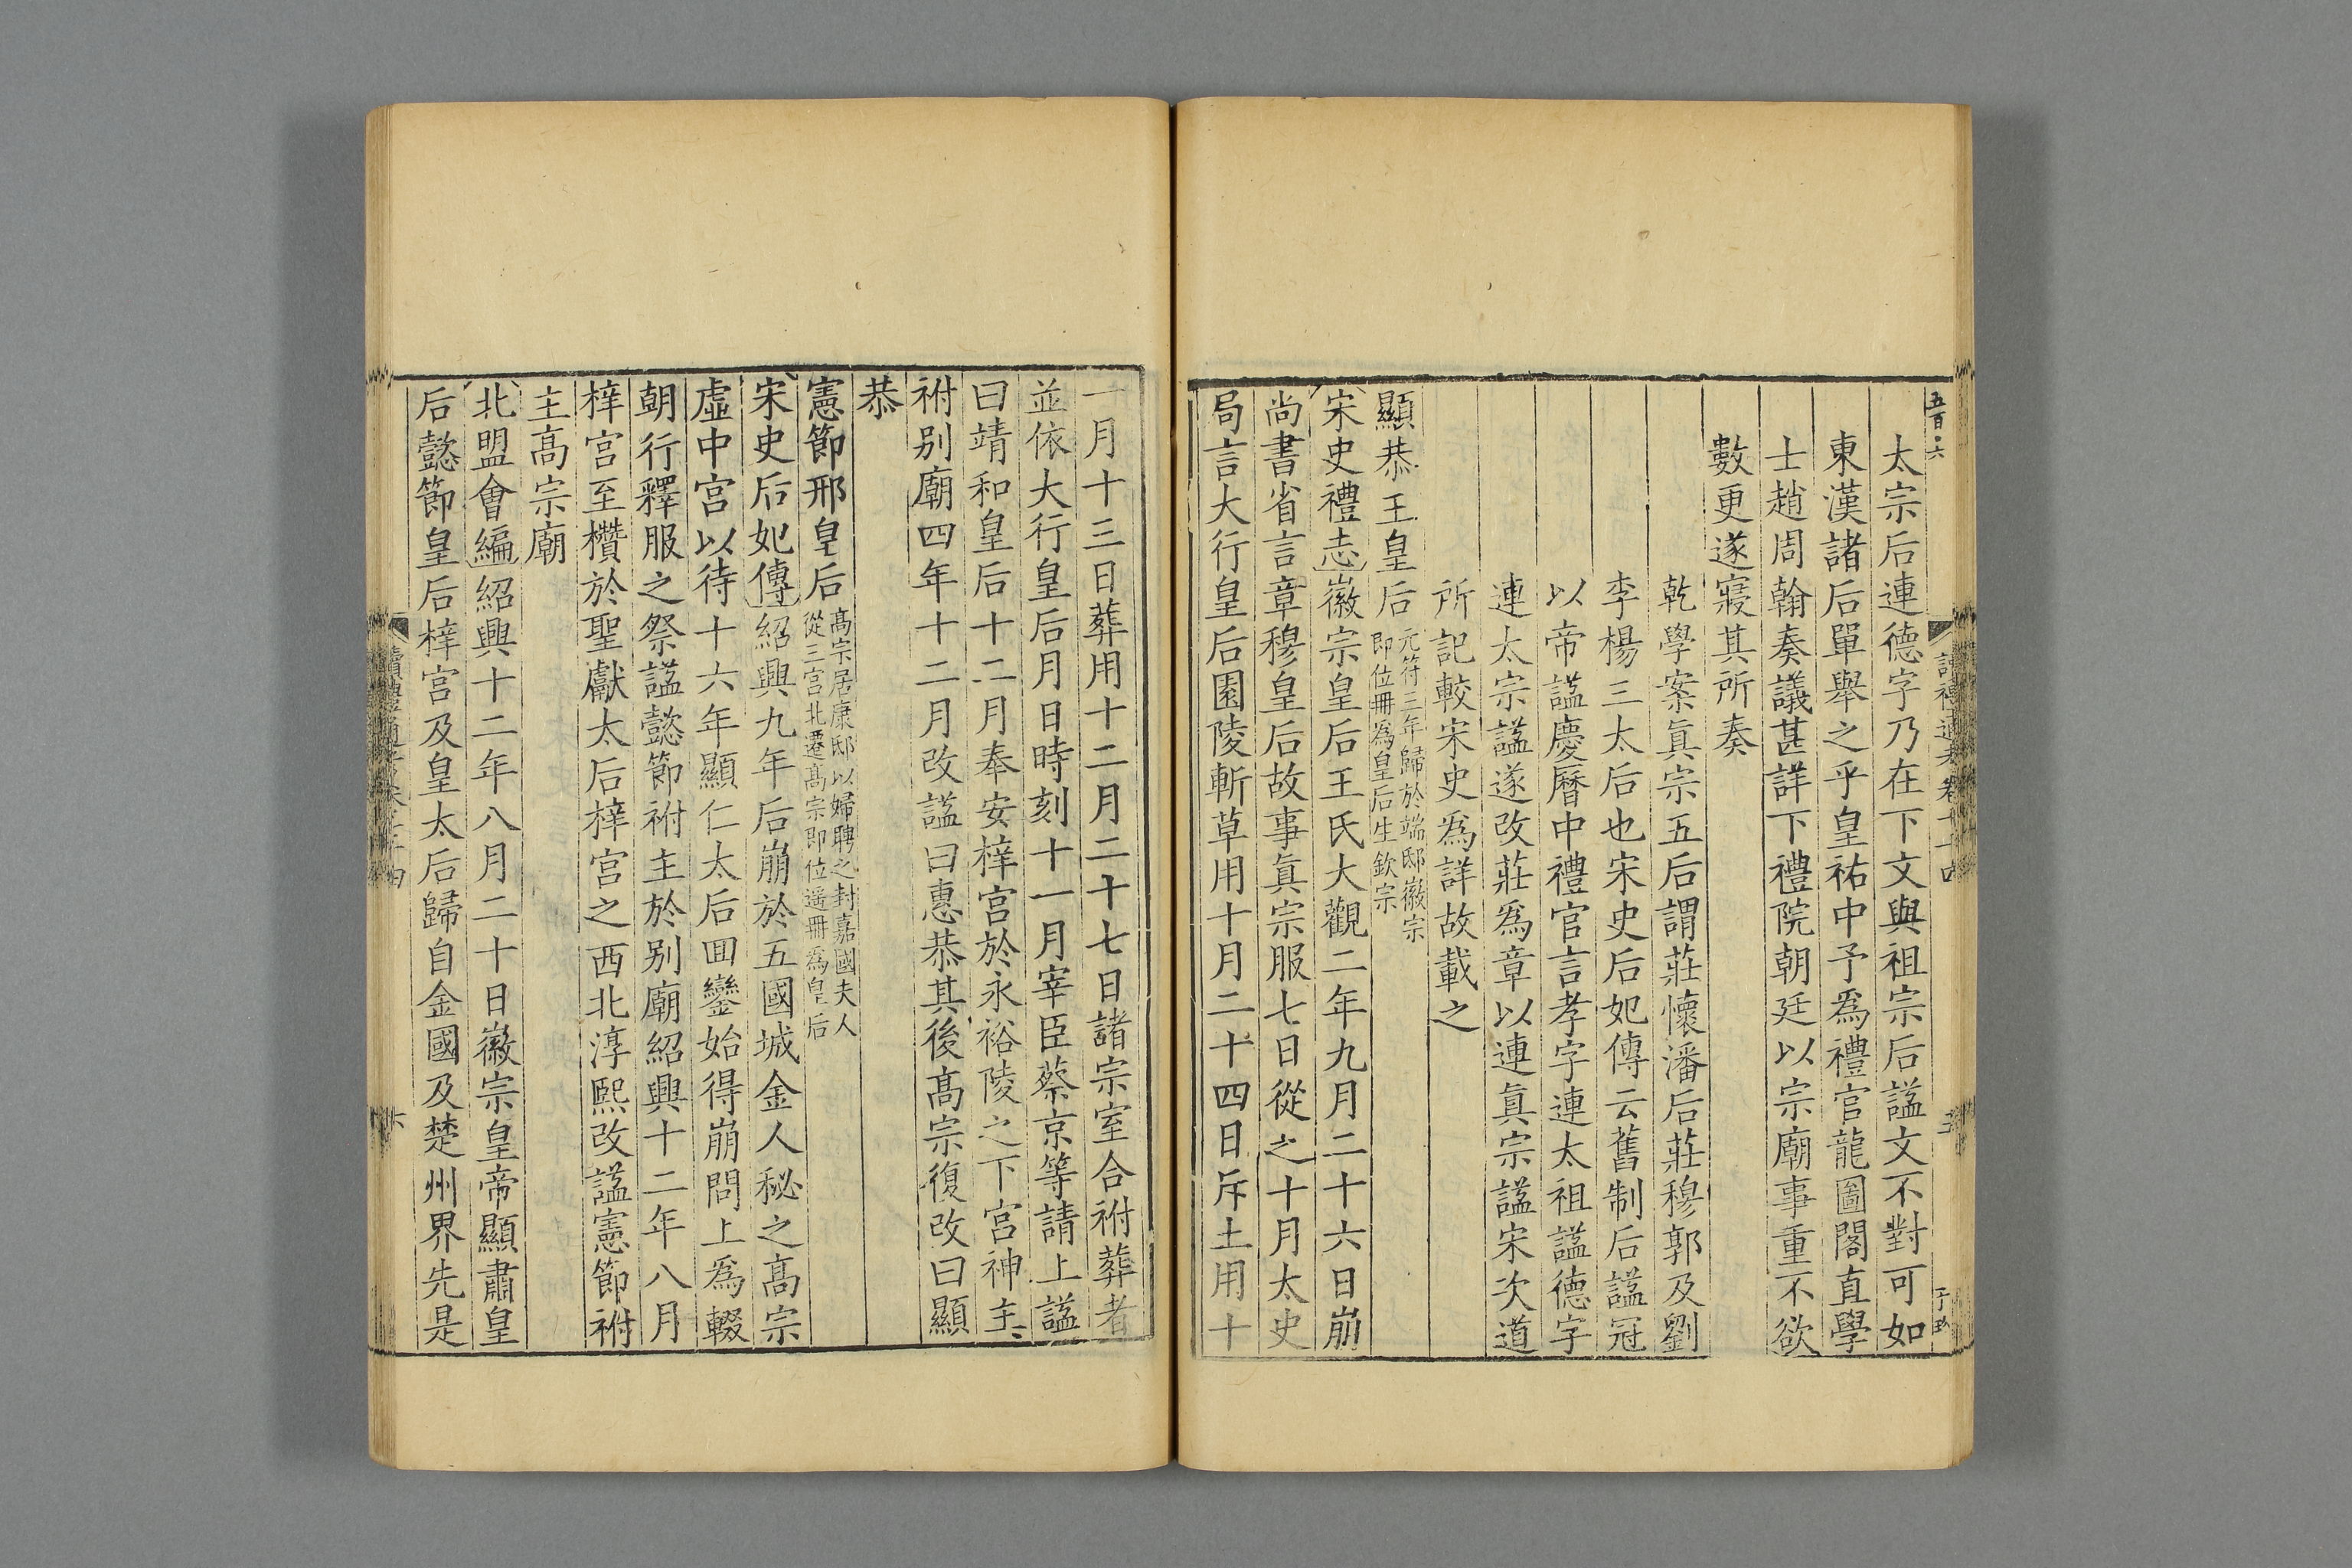 太宗后連德字乃在下文與祖宗后諡文不對可如
東漢諸后單舉之乎皇祐中予爲禮官龍圖閣直學
士趙周翰奏議甚詳下禮院朝廷以宗廟事重不欲
數更遂寢其所奏
乾學案眞宗五后謂莊懷潘后莊穆郭及劉
李楊三太后也宋史后妃傳云舊制后諡冠
以帝諡慶曆中禮官言孝字連太祖諡德字
連太宗諡遂改莊爲章以連眞宗諡宋次道
所記較宋史爲詳故載之
顯恭王皇后元符三年歸於端邸徽宗
即位冊爲皇后生欽宗
宋史禮志徽宗皇后王氏大觀二年九月二十六日崩
尚書省言章穆皇后故事眞宗服七日從之十月太史
局言大行皇后園陵斬草用十月二十四日斥土用十
一月十三日葬用十二月二十七日諸宗室合祔葬者
並依大行皇后月日時刻十一月宰臣蔡京等請上諡
曰靖和皇后十二月奉安梓宮於永裕陵之下宮神主
祔別廟四年十二月改諡曰惠恭其後高宗復改曰顯
恭
憲節邢皇后高宗居康邸以婦聘之封嘉國夫人
從三宮北遷高宗即位遥冊爲皇后
宋史后妃傳紹興九年后崩於五國城金人秘之高宗
虛中宮以待十六年顯仁太后囬鑾始得崩問上爲輟
朝行釋服之祭諡懿節祔主於別廟紹興十二年八月
梓宮至欑於聖獻太后梓宮之西北淳熙改諡憲節祔
主高宗廟
北盟會編紹興十二年八月二十日徽宗皇帝顯肅皇
后懿節皇后梓宮及皇太后歸自金國及楚州界先是